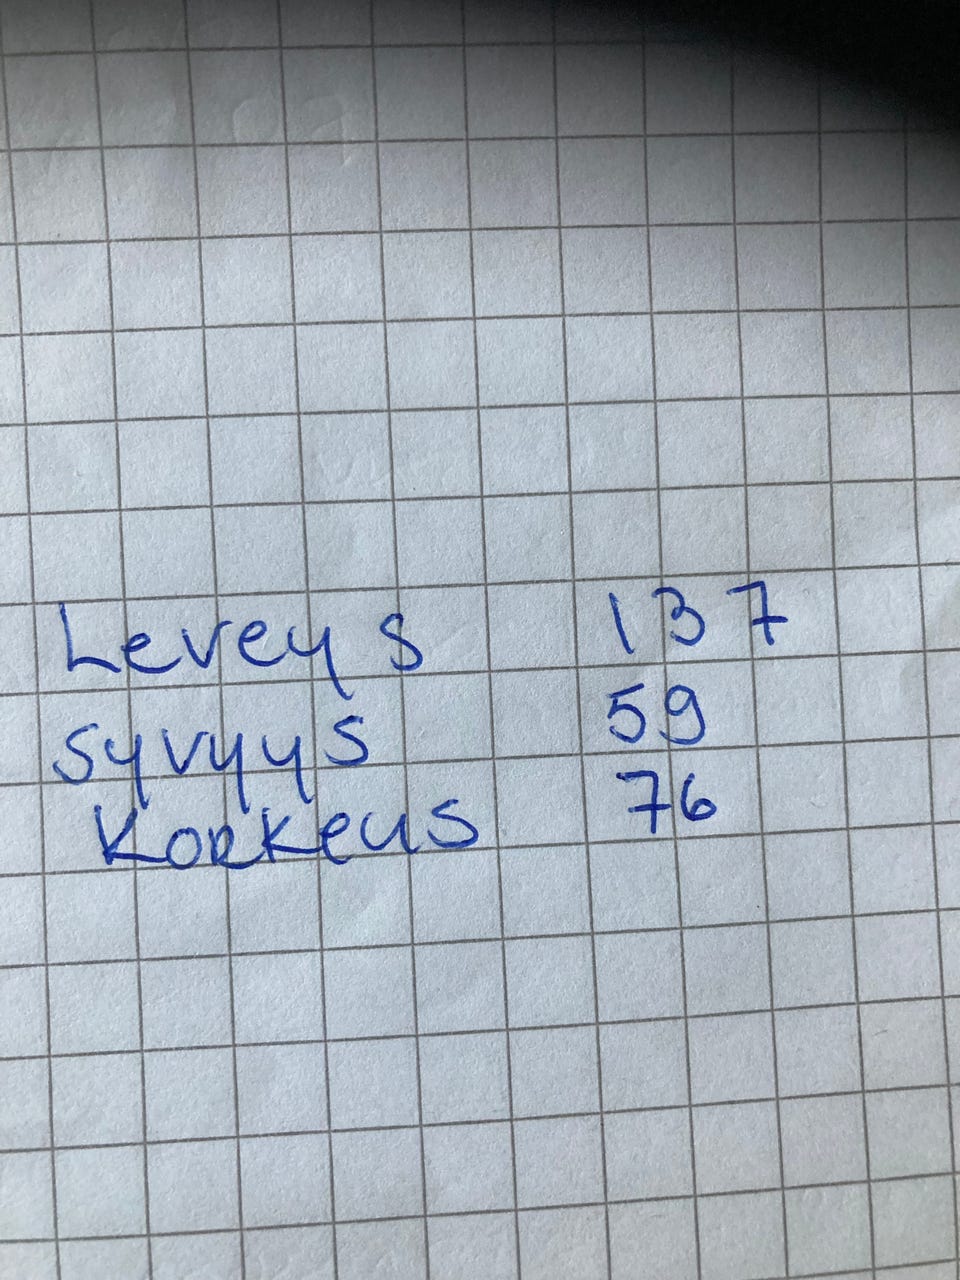 Leveys 137
syvyys 59
Korkeus 76